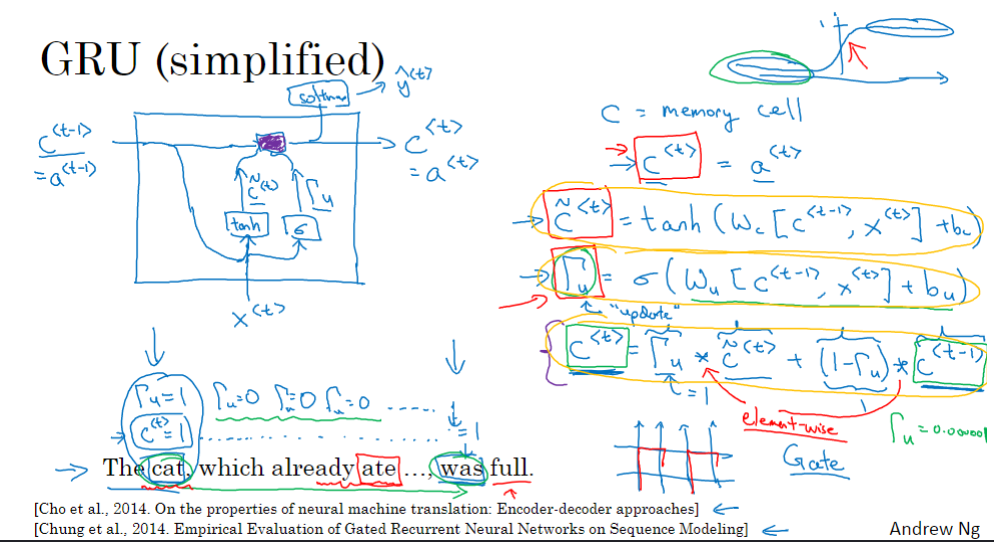 GRU (simplified)
softmax → ŷ<t>
c<t-1>
= a<t-1>
c̃<t>
Γu
tanh
σ
c<t>
= a<t>
x<t>
C = memory cell
→ c<t> = a<t>
→ c̃<t> = tanh (Wc [c<t-1>, x<t>] + bc)
→ Γu = σ (Wu [c<t-1>, x<t>] + bu)
"update"
c<t> = Γu * c̃<t> + (1-Γu) * c<t-1>
= 1
element-wise
Gate
Γu = 0.000001
Γu=1 Γu=0 Γu=0 Γu=0 .....
c<t>=1 ............ = 1
→ The cat, which already ate …, was full.
[Cho et al., 2014. On the properties of neural machine translation: Encoder-decoder approaches] ←
[Chung et al., 2014. Empirical Evaluation of Gated Recurrent Neural Networks on Sequence Modeling] ←
Andrew Ng